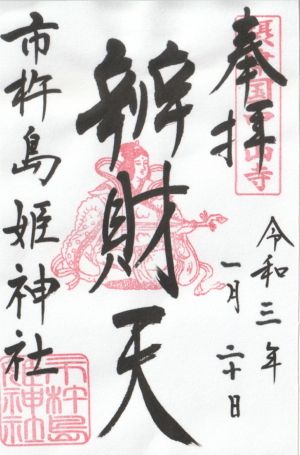 奉拝
摂津国中山寺
令和三年
一月二十日
辨財天
市杵島姫神社
市杵島姫神社